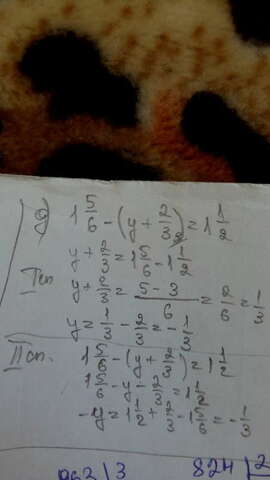 д) 1 5/6 - (y + 2/3) = 1 1/2
I сп. y + 2/3 = 1 5/6 - 1 1/2
y + 2/3 = (5 - 3)/6 = 2/6 = 1/3
y = 1/3 - 2/3 = - 1/3
II сп. 1 5/6 - (y + 2/3) = 1 1/2
1 5/6 - y - 2/3 = 1 1/2
-y = 1 1/2 + 2/3 - 1 5/6 = - 1/3
963 | 3 824 | 2